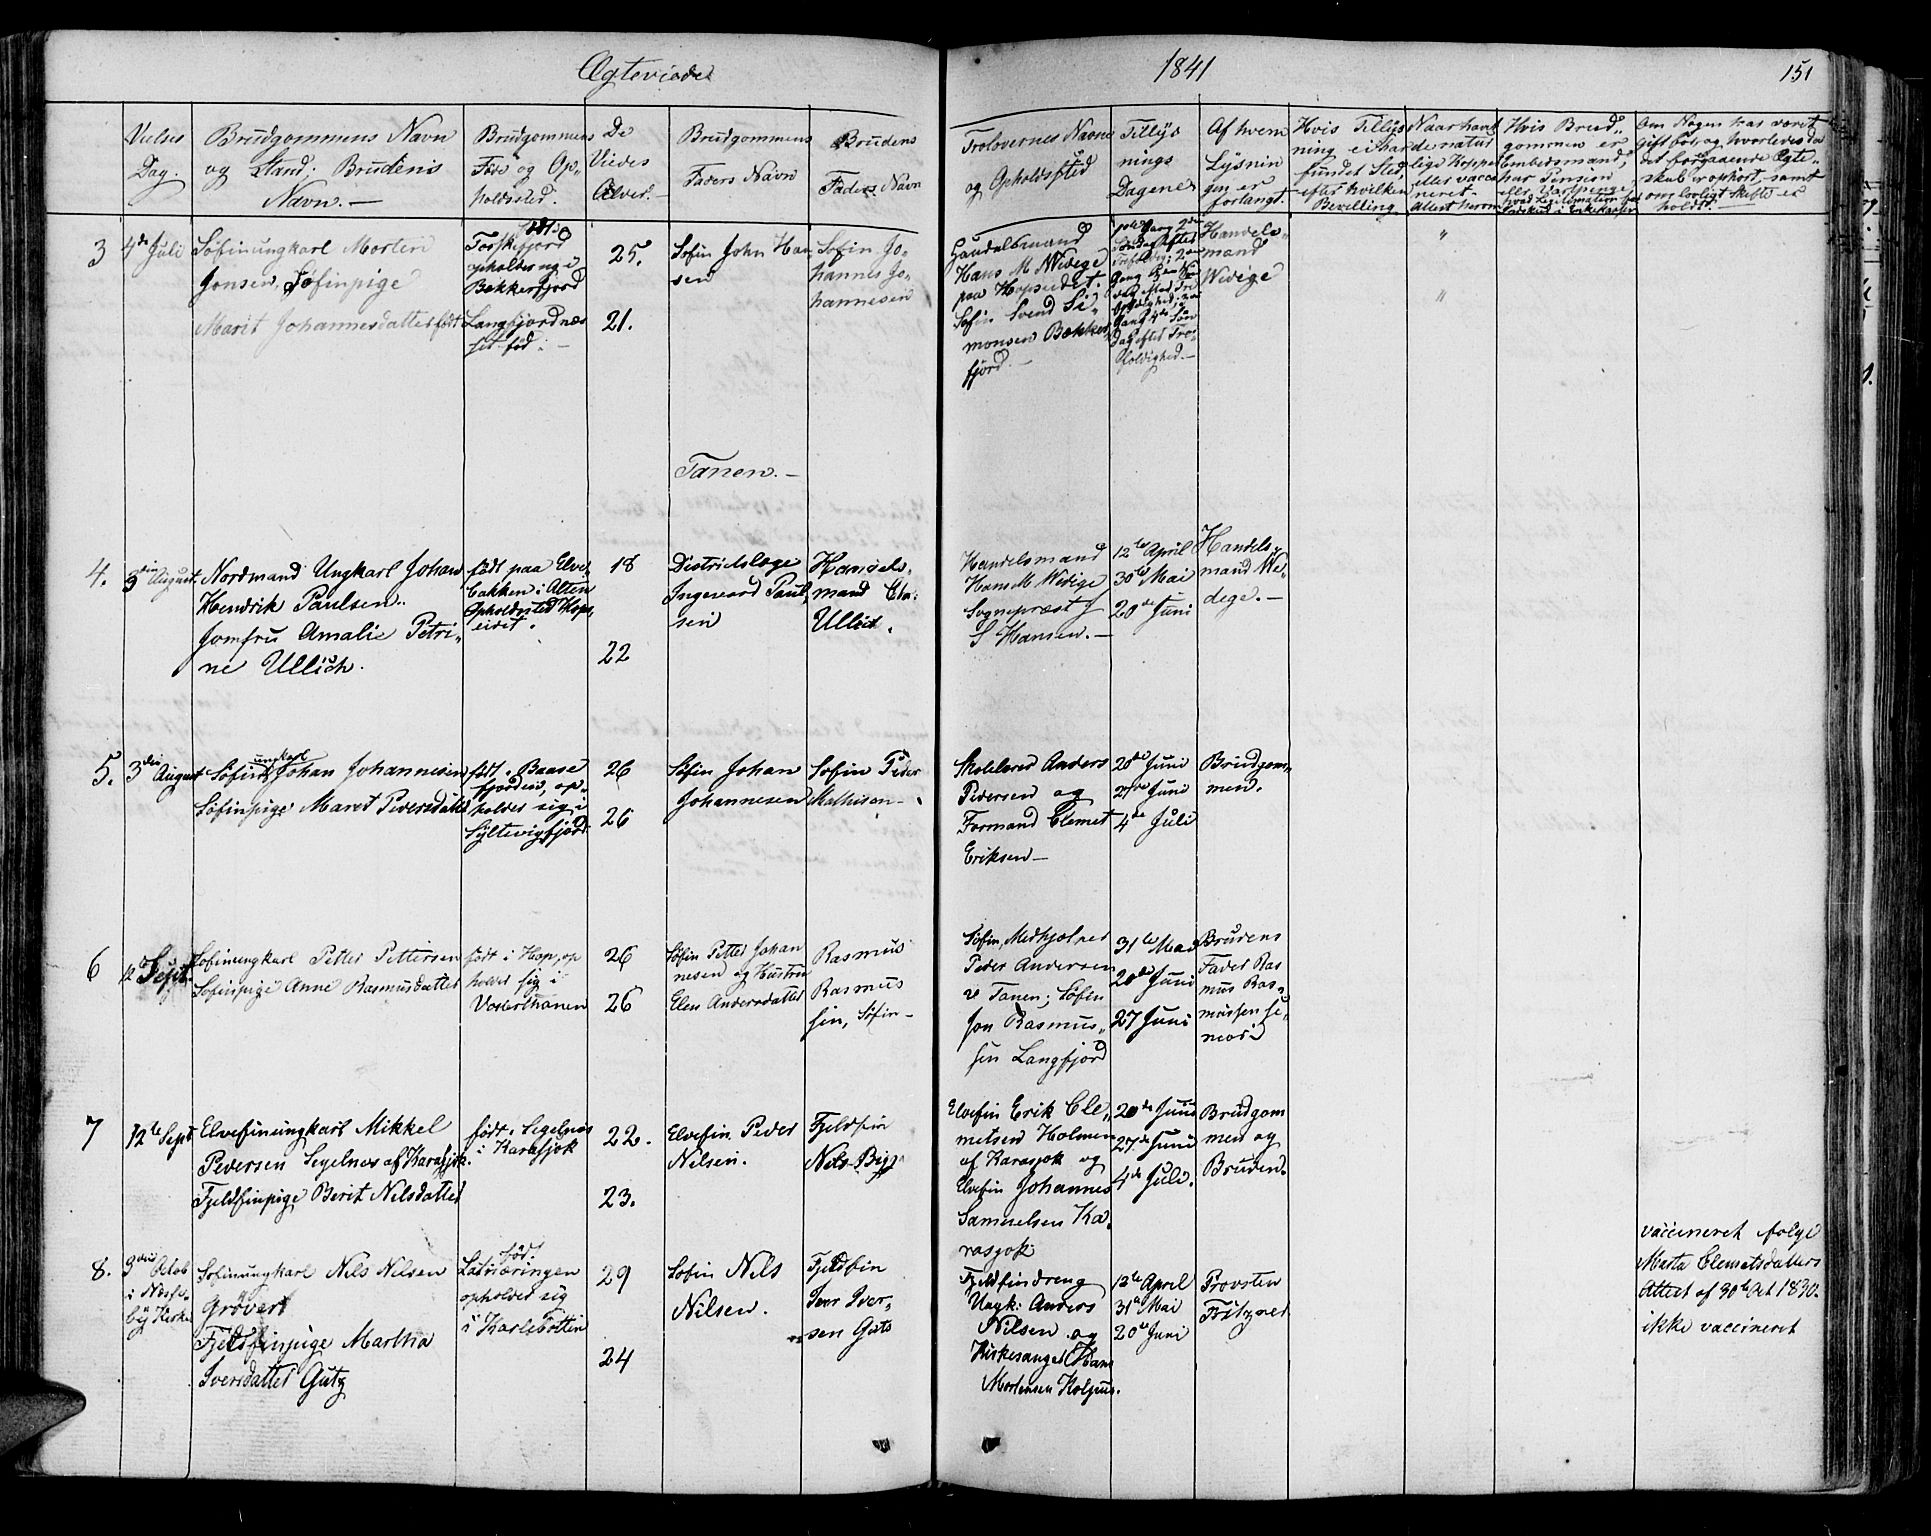 Ægteviede
1841
151
Vielses
Dag.
Brudgommens Navn
og Stand; Brudens
Navn.—
Brudgommens
Føde og Op-
holdssted.
De
Viedes
Alder.—
Brudgommens
Faders Navn
Brudens
Faders Navn
Trolovernes Navne
og Opholdssted
Tillys
nings
Dagene
Af hvem
Lysnin
gen er
forlangt.
Hvis Tillys
ning ei har
fundet Sted,
efter hvilken
Bevilling
Naar havd
de natur
lige Kopper
eller vacci
neret.
Attest herom
Hvis Brud„
gommen er
Embedsmand,
har Pension
Om Nogen har været
gift før, og hvorledes da
det forrgaaende Ægte„
skab er ophørt, samt
om lovligt Skifte er
holdt.
3
4de Juli
Søfinungkarl Morten
Jonsen, Søfinpige
Marit Johannesdatter født
født i
Torskefjord
opholder sig i
Bekkerfjord
Langfjordnæs
set fød.—
25.
21.
Søfin John Han
sen
Søfin Jo„
hannes Jo„
hannesen
Handelsmand
Hans M Wedege
paa Hopseidet.
Søfin Svend Si„
monsen Bekker
fjord.—
Søndag efter
Gang 4de Søn
dag efter Tre-
foldighed.—
Handels„
mand
Wedege
"
"
Tanen.—
4.
3die August.
Nordmand Ungkarl Johan
Hendrik Paulsen.
Jomfru Amalie Petri„
ne Ullich.
født paa Elve
bakken i Alten
Opholdssted Hops
eidet.
18
22
Districtslæge
Ingevord Paul
sen
Handels„
mand Ela:
Ullich.
Handelsmand
Hans M Wedege
Sognepræst J
S Hansen.—
12te April
30te Mai
20de Juni
Handels„
mand We„
dege.—
5.
3die August
ungkarl
Søfin Johan Johannesen
Søfinpige Maret Pedersdatter
født i Baase
fjorden, op„
holder sig i
Syltevigfjord
26
26
Søfin Johan
Johannesen
Søfin Peder
Mathisen—
Skolelærer Anders
Pedersen og
Formand Clemet
Eriksen—
20de Juni
27de Juni
4de Juli
Brudgom„
men.
6
12te Sept.
Søfinungkarl Petter Pettersen
Søfinpige Anne Rasmusdatter
født i Hop, op
holder sig i
Vestertanen
26
26
Søfin Petter Johan
nesen og Hustru
Elen Andersdatter
Rasmus
Rasmus
sen, Søfin—
Søfin, Medhjelper
Peder Andersen
i Tanen; Søfin
Jon Rasmus„
sen Langfjord
31te Mai
20de Juni
27 Juni
Brudens
Fader Ras
mus Ras„
mussen se„
nior
7
12te Sept
Elvefinungkarl Mikkel
Pedersen Segelnes af Karasjok.
Fjeldfinpige Berit Nilsdatter
født i Segelnes
i Karasjok
22.
23.
Elvefin Peder
Nilsen.
Fjeldfin
Nils Bigg
Elvefin Erik Cle„
metsen Holmen
af Karasjok og
Elvefin Johannes
Samuelsen Ka„
rasjok
20de Juni
27de Juni
4de Juli.
Brudgom
men og
Bruden.
8.
3die Octob
i Næsse„
by Kirke
Søfinungkarl Nils Nilsen
Grøvert
Fjeldfinpige Martha
Iversdatter Gutz
født
Latværingen
opholder sig
i Karlebotten
29
24
Søfin Nils
Nilsen.
Fjeldfin
Iver Iver„
sen Guts
Fjeldfindreng
Ungk: Anders
Nilsen og
Kirkesanger Hans
Mortensen Koljuus.
12te April
31te Mai
20de Juni
Provsten
Fritzner
vaccineret følge
Marta Clemetsdatters
Attest af 30te Oct 1830.
ikke vaccineret